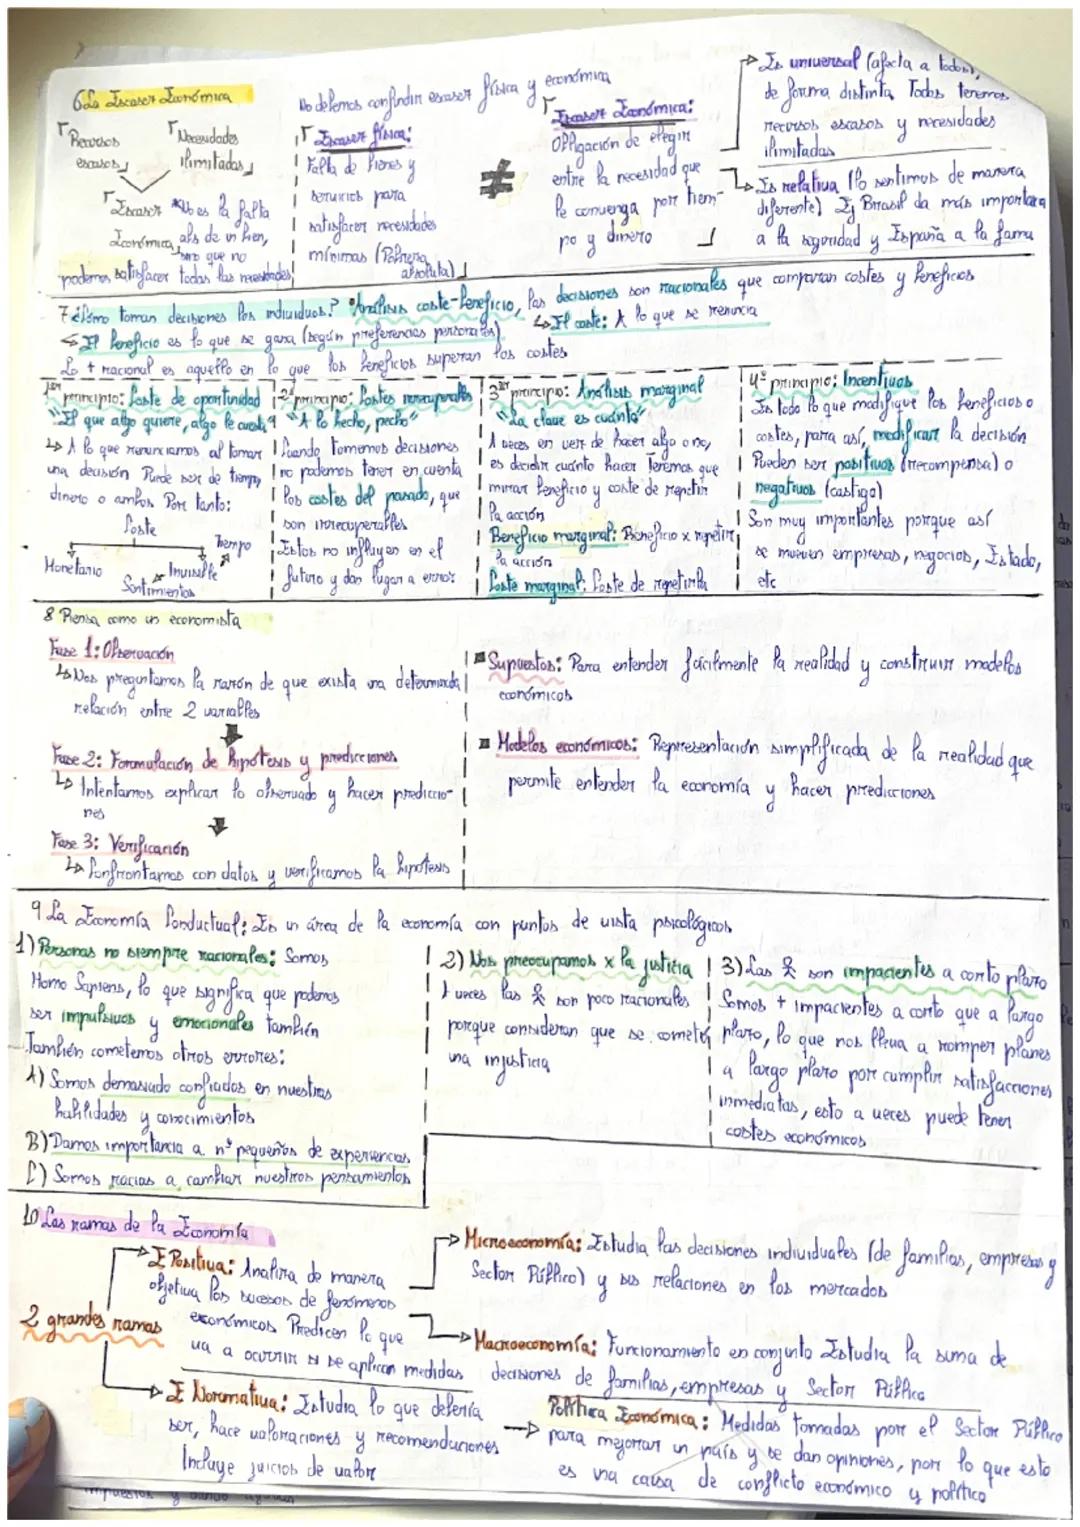 6 La Escasez Económica
Recursos escasos
Necesidades ilimitadas
Escasez Económica
*No es la falta
abs de un bien,
sino que no
podemos satisfacer todas las necesidades
No debemos confundir escasez física y económica
Escasez física:
Falta de bienes y
servicios para
satisfacer necesidades
mínimas (Pobreza
absoluta)
≠
Escasez Económica:
Obligación de elegir
entre la necesidad que
le convenga por tiem-
po y dinero
Es universal (afecta a todos),
de forma distinta Todos tenemos
recursos escasos y necesidades
ilimitadas
Es relativa (lo sentimos de manera
diferente) Ej Brasil da más importacia
a la seguridad y España a la fama
7 ¿Cómo toman decisiones los individuos? *Análisis coste-beneficio, las decisiones son racionales que comparan costes y beneficios
El coste: A lo que se renuncia
El beneficio es lo que se gana (según preferencias personales)
Lo + racional es aquello en lo que los beneficios superan los costes
1er principio: Coste de oportunidad
"El que algo quiere, algo le cuesta"
A lo que renunciamos al tomar
una decisión Puede ser de tiempo,
dinero o ambos Por tanto:
Coste
Monetario
Sentimientos
Invisible
Tiempo
2º principio: Costes irrecuperables
"A lo hecho, pecho"
Cuando tomemos decisiones
no podemos tener en cuenta
los costes del pasado, que
son irrecuperables
Estos no influyen en el
futuro y dan lugar a error
3er principio: Análisis marginal
"La clave es cuánto"
A veces en vez de hacer algo o no,
es decidir cuánto hacer Tenemos que
mirar beneficio y coste de repetir
la acción
Beneficio marginal: Beneficio x repetir
la acción
Coste marginal: Coste de repetirla
4º principio: Incentivos
Es todo lo que modifique los beneficios o
costes, para así, modificar la decisión
Pueden ser positivos (recompensa) o
negativos (castigo)
Son muy importantes porque así
se mueven empresas, negocios, Estado,
etc
8 Piensa como un economista
Fase 1: Observación
Nos preguntamos la razón de que exista una determinada
relación entre 2 variables
Fase 2: Formulación de hipótesis y predicciones
Intentamos explicar lo observado y hacer prediccio-
nes
Fase 3: Verificación
Confrontamos con datos y verificamos la hipótesis
Supuestos: Para entender fácilmente la realidad y construir modelos
económicos
Modelos económicos: Representación simplificada de la realidad que
permite entender la economía y hacer predicciones
9 La Economía Conductual: Es un área de la economía con puntos de vista psicológicos
1) Personas no siempre racionales: Somos
Homo Sapiens, lo que significa que podemos
ser impulsivos y emocionales también
También cometemos otros errores:
A) Somos demasiado confiados en nuestras
habilidades y conocimientos
B) Damos importancia a nº pequeños de experiencias
C) Somos reacios a cambiar nuestros pensamientos
2) Nos preocupamos x la justicia
A veces las 웃 son poco racionales
porque consideran que se cometió
una injusticia
3) Las 웃 son impacientes a corto plazo
Somos + impacientes a corto que a largo
plazo, lo que nos lleva a romper planes
a largo plazo por cumplir satisfacciones
inmediatas, esto a veces puede tener
costes económicos
10 Las ramas de la Economía
2 grandes ramas
E Positiva: Analiza de manera
objetiva los sucesos de fenómenos
económicos Predicen lo que
va a ocurrir si se aplican medidas
E Normativa: Estudia lo que debería
ser, hace valoraciones y recomendaciones
Incluye juicios de valor
Microeconomía: Estudia las decisiones individuales (de familias, empresas y
Sector Público) y sus relaciones en los mercados
Macroeconomía: Funcionamiento en conjunto Estudia la suma de
decisiones de familias, empresas y Sector Público
Política Económica: Medidas tomadas por el Sector Público
para mejorar un país y se dan opiniones, por lo que esto
es una causa de conflicto económico y político